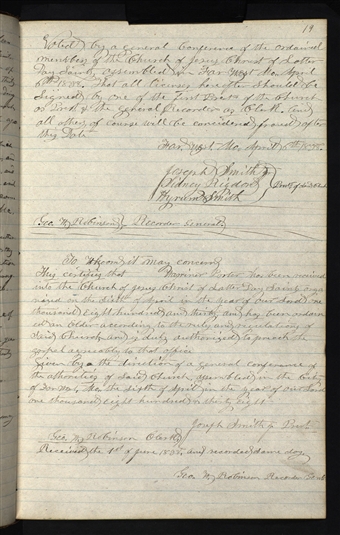 19
Voted by a general Conference of the ordained
members of the Church of Jesus Christ of Latter
Day Saints, assembled in Far West Mo. April
6th 1838, That all Licenses hereafter should be
signed by one of the First Presdts of the Church
and the general Recorder as Clerk, and
all others of course will be considered after
this Date
Far West Mo, April 6th 1838.
Joseph Smith Jr
Sidney Rigdon
Hyrum Smith
Geo. W. Robinson, Recorder General
To Whom it may concern
This certifies that Warriner Porter has been received
into the Church of Jesus Christ of Latter Day Saints, organ
ized on the sixth of April in the year of our Lord one
thousand eight hundred and thirty and has been ordain
ed an Elder according to the rules and regulations of
said Church and is duly authorized to preach the
gospel agreeably to that office
Given by the direction of a general conference of
the authorities of said Church, assembled in the City
of Far West, Mo, the sixth of April in the year of our Lord
one thousand eight hundred & thirty eight
Joseph Smith Jr Prest
Geo. W. Robinson Clerk
Received the 1st of June 1838, and recorded same day
Geo W. Robinson Recorder